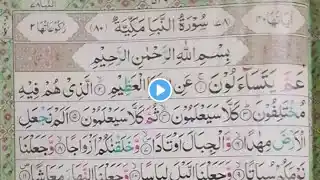 سُوْرَةُ النَّبَاِ مَكِّيَّةٌ
بِسْمِ اللّٰهِ الرَّحْمٰنِ الرَّحِيْمِ
عَمَّ يَتَسَآءَلُوْنَ ۝ عَنِ النَّبَاِ الْعَظِيْمِ ۝ الَّذِيْ هُمْ فِيْهِ
مُخْتَلِفُوْنَ ۝ كَلَّا سَيَعْلَمُوْنَ ۝ ثُمَّ كَلَّا سَيَعْلَمُوْنَ ۝ اَلَمْ نَجْعَلِ
الْاَرْضَ مِهٰدًا ۝ وَّالْجِبَالَ اَوْتَادًا ۝ وَّخَلَقْنٰكُمْ اَزْوَاجًا ۝ وَّجَعَلْنَا
نَوْمَكُمْ سُبَاتًا ۝ وَّجَعَلْنَا الَّيْلَ لِبَاسًا ۝ وَّجَعَلْنَا النَّهَارَ مَعَاشًا